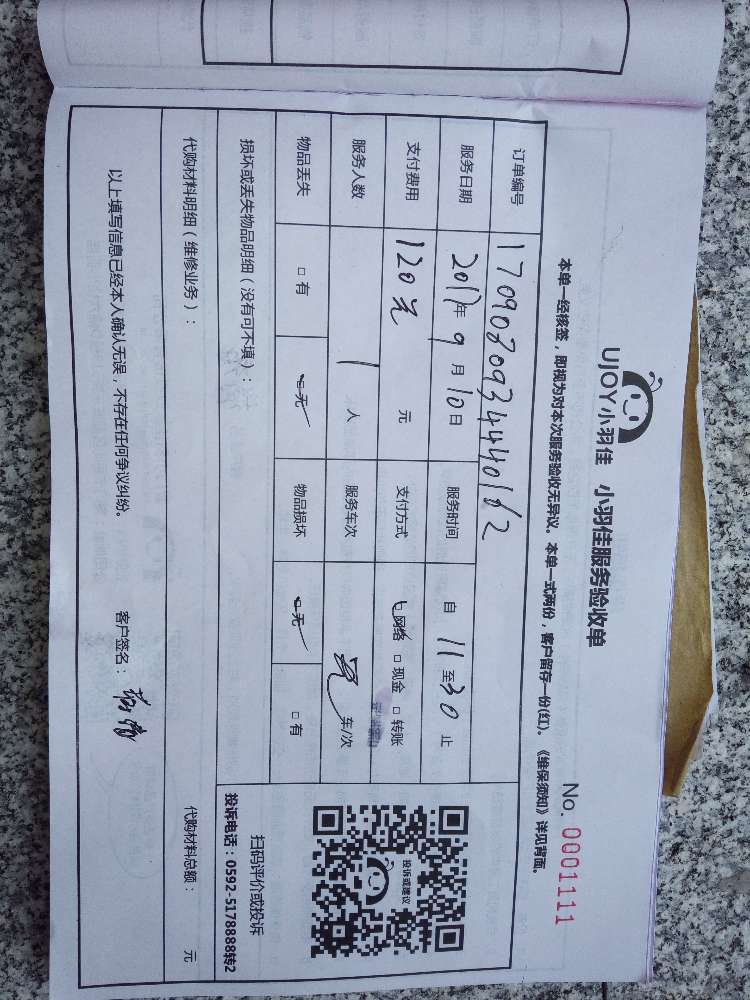 UJOY小羽佳 小羽佳服务验收单
No. 0001111
本单一经核签，即视为对本次服务验收无异议。本单一式两份，客户留存一份(红)。《维保须知》详见背面。
订单编号 1709080934440162
服务日期 2017年 9 月 10 日 服务时间 自 11 至 30 止
支付费用 120元 元 支付方式 网络 □ 现金 □ 转账
服务人数 1 人 服务车次 车/次
物品丢失 □ 有 □ 无 物品损坏 □ 无 □ 有
损坏或丢失物品明细（没有可不填）：
代购材料明细（维修业务）： 代购材料总额： 元
以上填写信息已经本人确认无误，不存在任何争议纠纷。 客户签名：
投诉或建议
扫码评价或投诉
投诉电话：0592-5178888转2